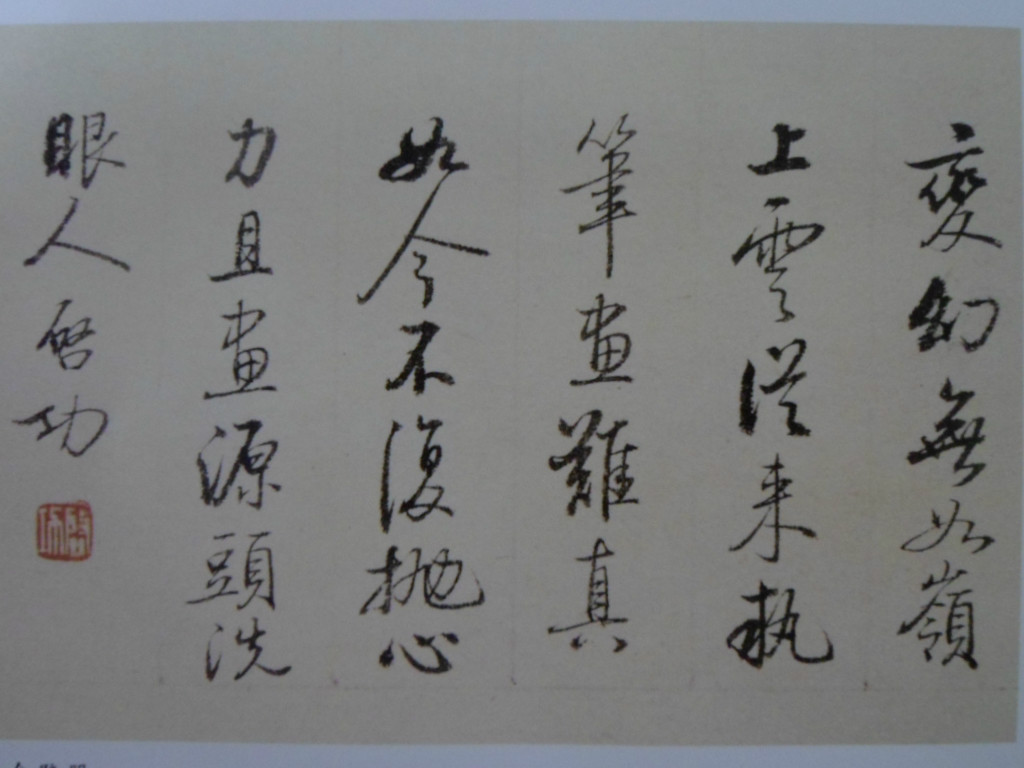 變幻無如嶺
上雲從來執
筆畫難真
如今不復拋心
力且畫源頭洗
眼人啓功
啓功